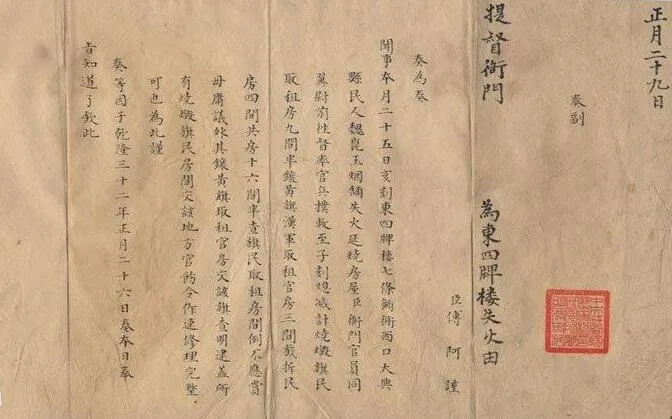 正月二十九日
奏副
提督衙門 為東四牌楼失火由
臣傅 阿 謹
奏為奏
聞事本月二十五日亥刻東四牌樓七條衚衕西口大興
縣民人魏崑玉烟鋪失火延燒房屋臣衙門官員同
翼尉前徃督率官兵撲救至子刻熄滅計燒燬旗民
取租房九間半鑲黃旗漢軍取租官房三間截拆民
房四間共房十六間半查旗民取租房間例不應賞
毋庸議外其鑲黃旗取租官房交該旗查明建盖所
有燒燬旗民房間交該地方官飭令作速修理完整
可也為此謹
奏等因于乾隆三十二年正月二十六日奏本日奉
旨知道了欽此